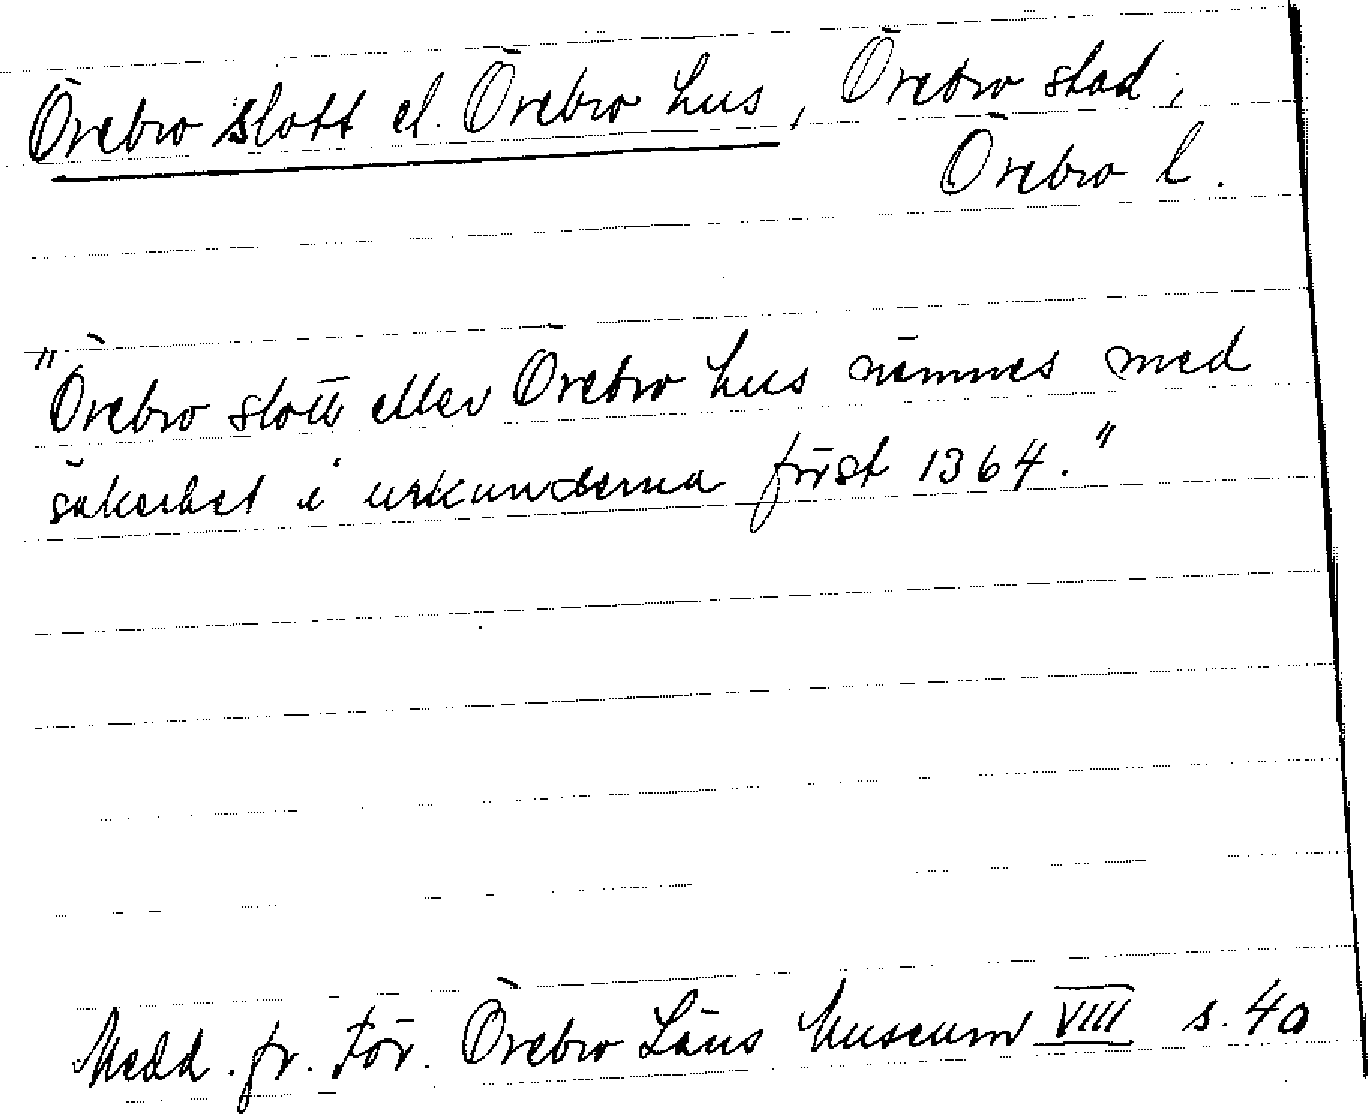 Örebro slott el. Örebro hus, Örebro stad,
Örebro l.
"Örebro slott eller Örebro hus nämnes med
säkerhet i urkunderna först 1364."
Medd. fr. För. Örebro Läns Museum VIII s. 40